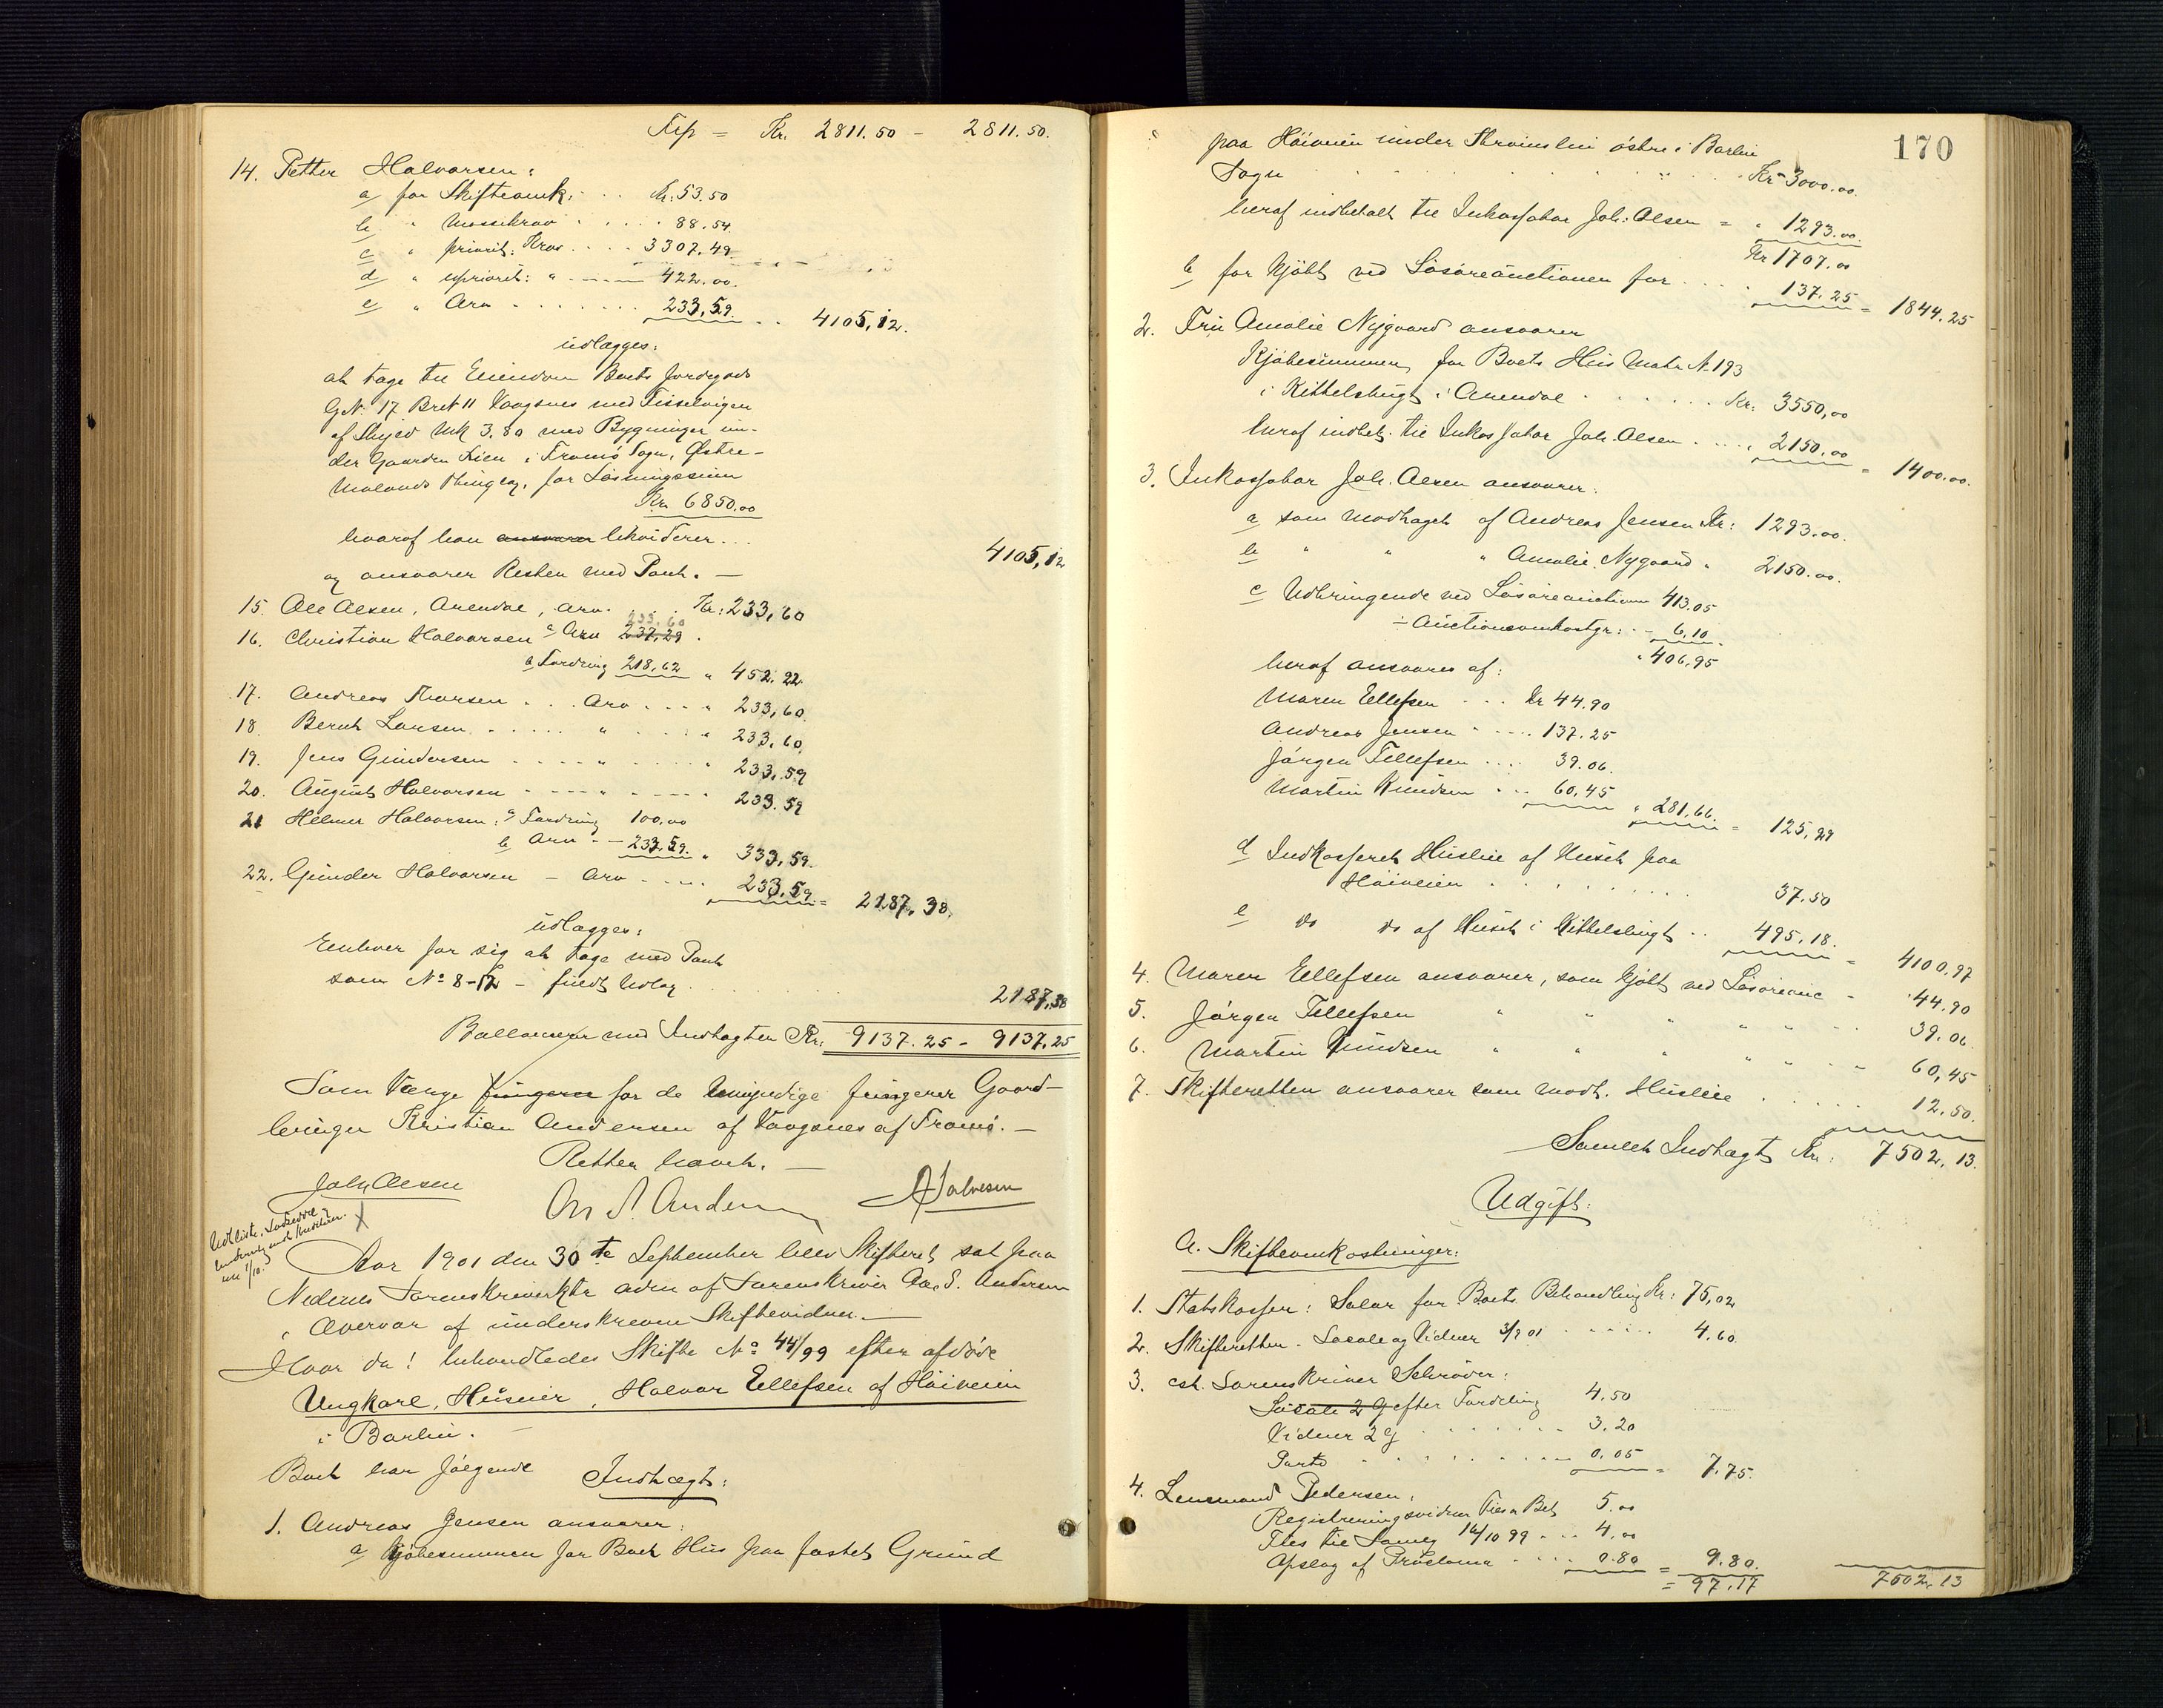 Trsp = Kr. 2811.50 - 2811.50.
14. Petter Halvorsen:
a for Skifteomk: . . Kr: 53.50
b " Massekrav . . . . 88.54.
c " priorit: Krav . . . . 3307.49.
d " upriorit: " . - - - 422.00.
e " Arv . . . . . . . 233,59. . . 4105,12.
udlægges:
at tage til Eiendom Boets Jordegods
G.N. 17 Br.N 11 Vaagsnes med Tisselvigen
af Skyld Mk 3,80 med Bygninger un-
der Gaarden Lien i Tromø Sogn, Østre-
Molands Thinglag, for Løsningssum
Kr. 6850.00
hvoraf han ansvarer likviderer . . . 4105,12
og ansvarer Resten med Pant. —
15. Ole Olsen, Arendal, Arv. . . . Kr: 233,60
16. Christian Halvorsen a Arv 237,29 233,60
b Fordring 218,62 " 452.22
17. Andreas Thorsen . . . Arv . . . . " 233,60.
18. Bernt Larsen . . . . . " . . . . " 233,60.
19. Jens Gundersen . . . . . " . . . . . " 233,59
20. August Halvorsen - - - - " - - - - . 233.59
21 Helmer Halvorsen: a Fordring 100,00
b Arv - - 233,59. " 333,59.
22. Gunder Halvorsen - Arv . . . . . 233,59 = 2187,38.
udlægges:
Enhver for sig at tage med Pant
som No 8-12 - fuldt Udlæg . . . . . 2187,38
Ballancerer med Indtægten Kr: 9137.25 - 9137,25
Som Værge fungerer for de Umyndige fungerer Gaard-
bruger Kristian Andersen af Vaagsnes af Tromø. —
Retten hævet. —
Joh. Olsen
Aa. S. Andersen
A Halvesen
Aar 1901 den 30te September blev Skifteret sat paa
Nedenes Sorenskriverktr adm af Sorenskriver Aa. S. Andersen
i Overvær af underskrevne Skiftevidner. —
Hvor da! behandledes Skifte No 44/99 efter afdøde
Ungkarl, Husmr, Halvor Ellefsen af Høiveien
i Barbu. —
Boet har følgende Indtægt:
1. Andreas Jensen ansvarer:
a Kjøbesummen for Boets Hus paa fæstet Grund
170
paa Høiveien under Strømsbu østre i Barbu
Sogn . . . . . . . . Kr 3000.00.
heraf indbetalt til Inkassator Joh: Olsen = " 1293.00.
Kr 1707.00
b for kjøbt ved Løsøreauctionen for . . . . 137.25 = 1844.25
2. Fru Amalie Nygaard ansvarer
Kjøbesummen for Boets Hus Matr N. 193
i Kittelsbugt i Arendal . . . . . . Kr: 3550,00
heraf indbet. til Inkassator Joh. Olsen . . . . . 2150,00 = 1400.00.
3. Inkassator Joh. Olsen ansvarer:
a som modtaget af Andreas Jensen Kr: 1293.00.
b " " " Amalie Nygaard " 2150.00.
c Udbringende ved Løsøreauctionen 413.05
÷ Auctionsomkostgr: . - 6,10.
" 406,95
heraf ansvares af:
Maren Ellefsen . . . Kr 44.90
Andreas Jensen . . . . . 137.25
Jørgen Tellefsen . . . . 39.06.
Martin Knudsen . . . 60,45
" 281,66. = 125,29
d Indkasseret Husleie af Huset paa
Høiveien . . . . . . . . 37.50
e do do af Huset i Kittelsbugt . . 495.18. = 4100,97
4. Maren Ellefsen ansvarer, som kjøbt ved Løsøreauc - . 44.90
5. Jørgen Tellefsen " " " " " " - . 39.06.
6. Martin Knudsen " " " " " " - . 60,45
7. Skifteretten ansvarer som modt. Husleie . . . . . 12.50.
Samlet Indtægt Kr: 7502,13.
Udgift:
A. Skifteomkostninger:
1. Statskassen: Salær for Boets Behandling Kr: 75,02
2. Skifteretten - Locale og Vidner 3/9 01 . . . . . . 4.60.
3. cst. Sorenskriver Schrøder:
Locale 2 G efter Fordeling 4.50
Vidner 2 G . . . . . . . 3.20
Porto . . . . . . . . 0.05 = 7.75.
4. Lensmand Pedersen:
Registreringsvidner 5.00
til Samlg 14/10 99 . . . 4,00
Opslag af Proclama . . . . 0.80 = 9.80.
= 97.17 7502,13